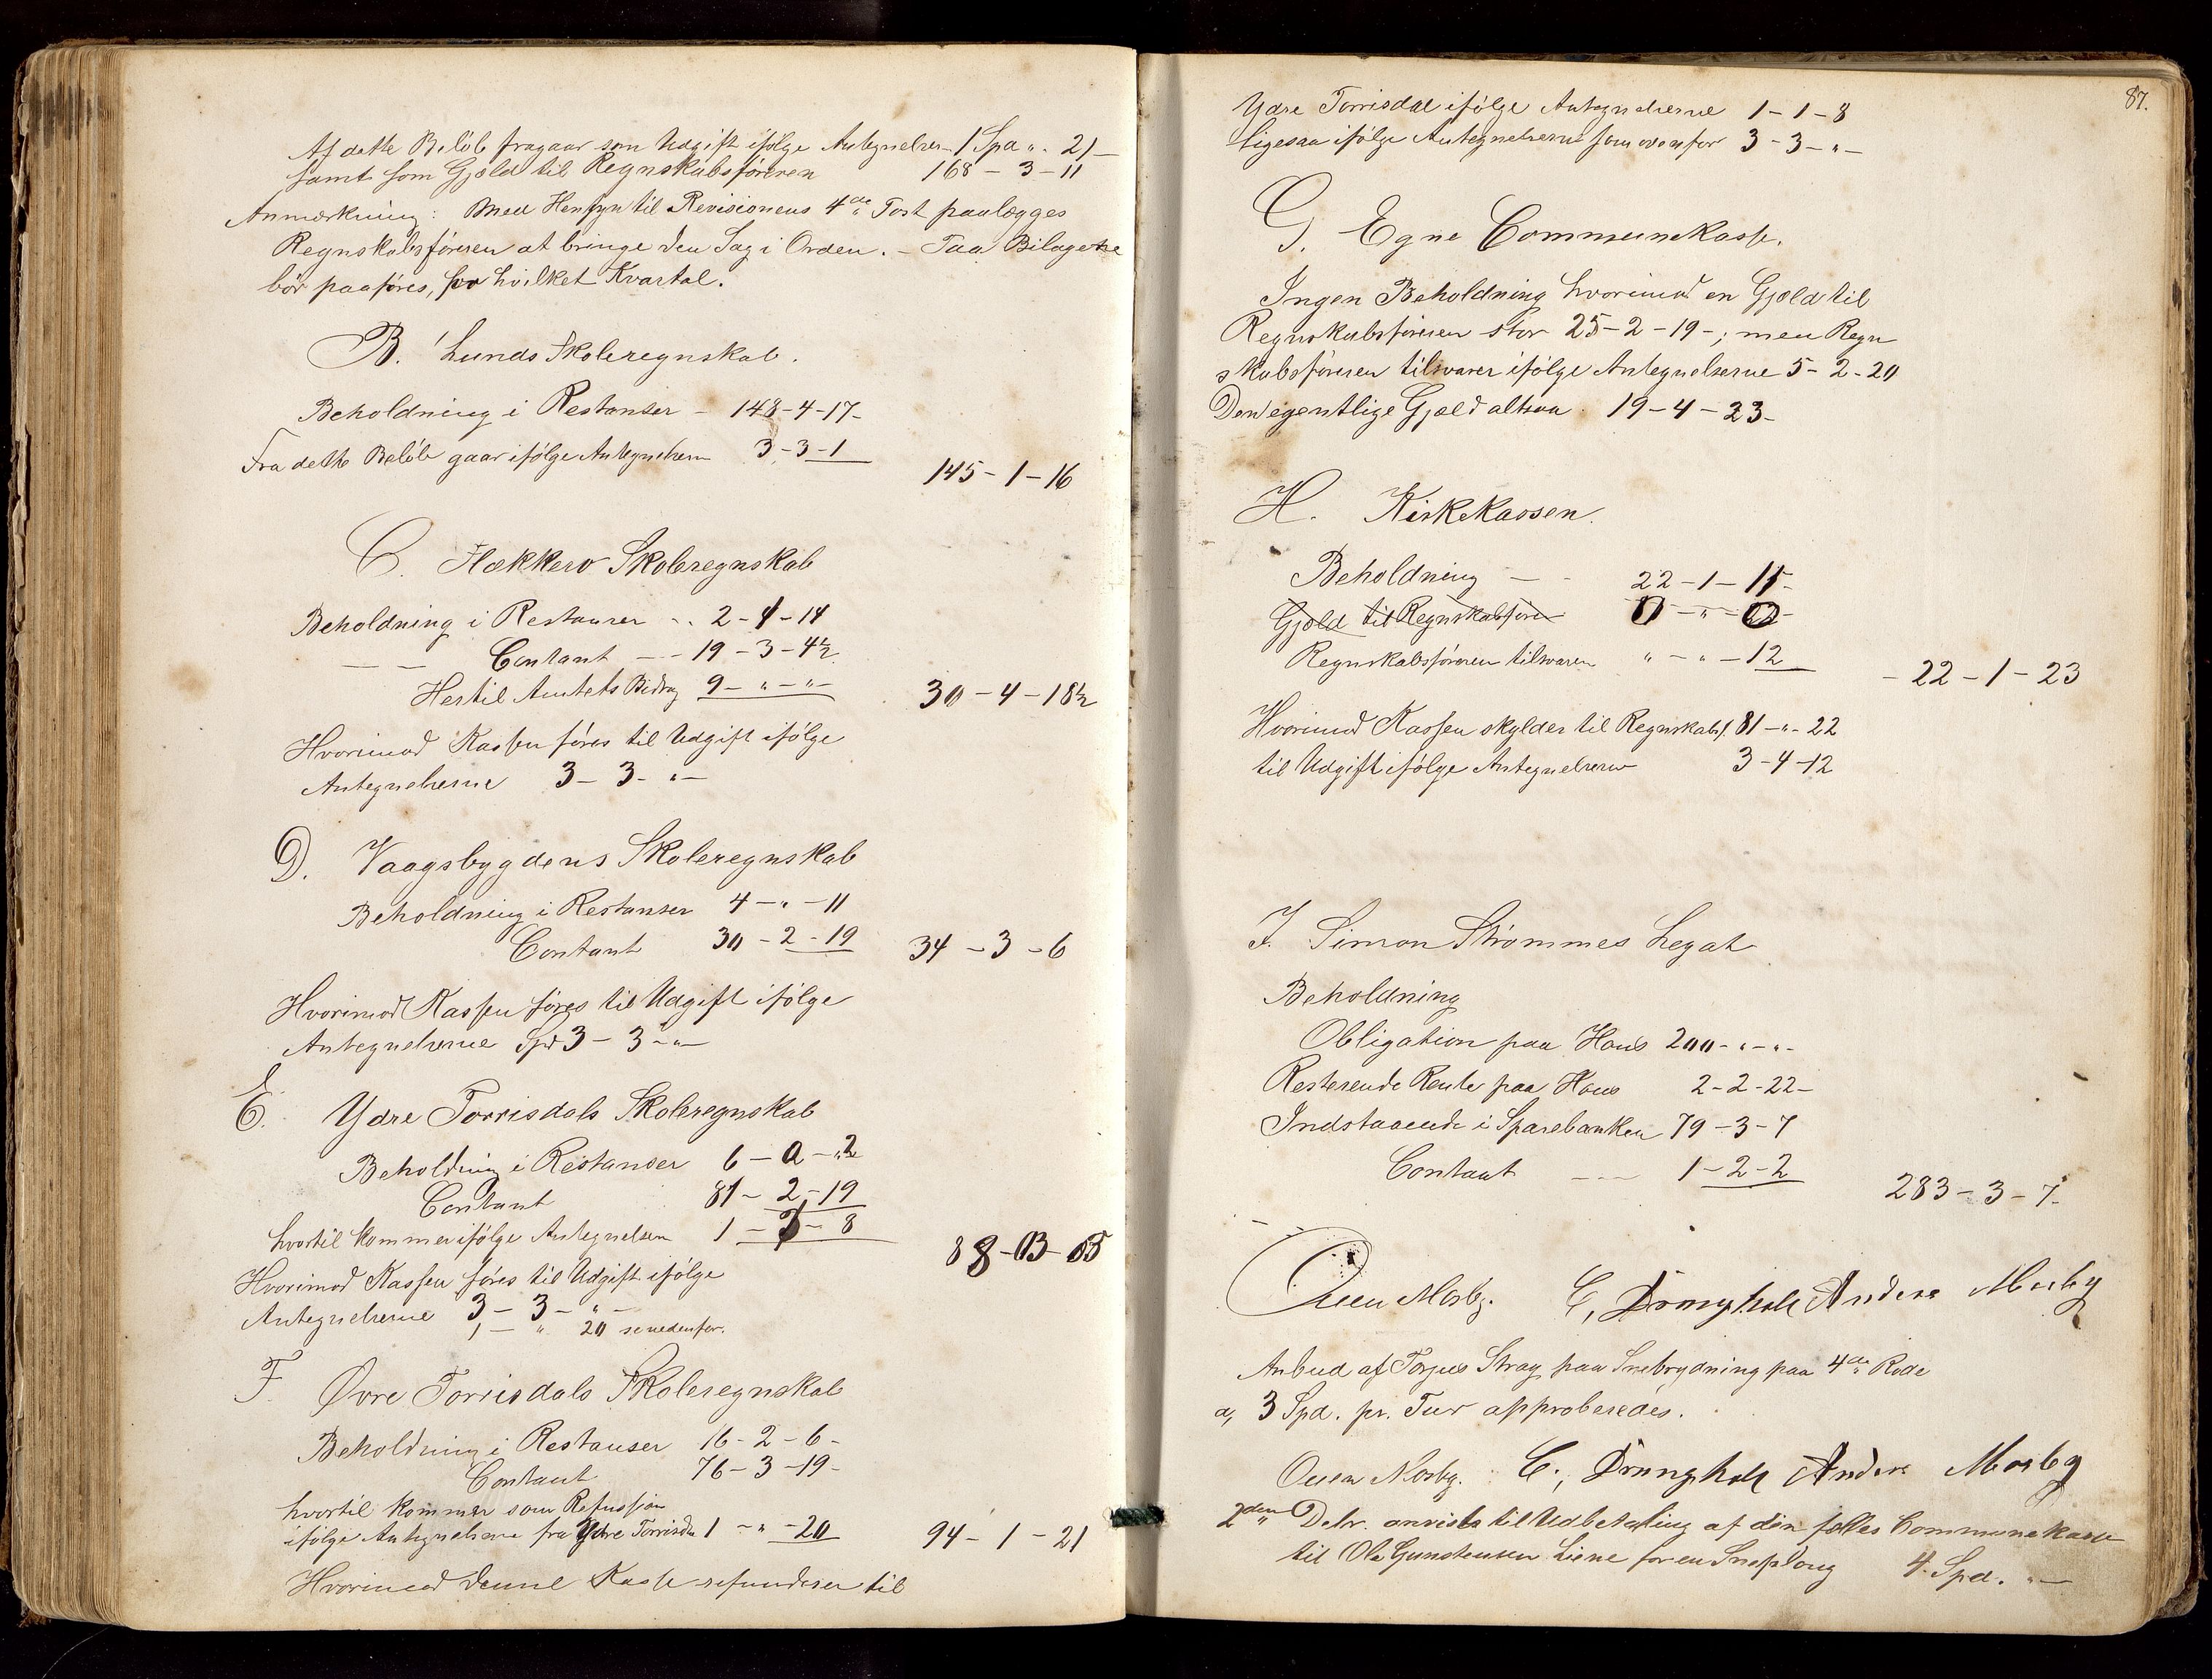 Af dette Beløb fragaar som Udgift ifølge Antegnelser 1 Spd „ - 21 –
samt som Gjæld til Regnskabsføreren 168 – 3 – 11
Anmærkning: Med Hensyn til Revisionens 4de Post paalægges
Regnskabsføreren at bringe den Sag i Orden. – Paa Bilagene
bør paaføres, for hvilket Kvartal.
B. Lunds Skoleregnskab.
Beholdning i Restanser – 148-4-17-
Fra dette Beløb gaar ifølge Antegnelsern 3-3-1
145-1-16
C. Flekkerø Skoleregnskab
Beholdning i Restanser - . 2-4-14
— — Contant — 19-3-4½
Hertil Amtets Bidrag 9 - „ - „ -
30-4-18½
Hvorimod Kassen føres til Udgift ifølge
Antegnelserne 3-3-„-
D. Vaagsbygdens Skoleregnskab
Beholdning i Restanser 4-„-11
Contant 30-2-19 34-3-6
Hvorimod Kassen føres til Udgift ifølge
Antegnelserne Spd 3-3-„-
E. Ydre Torrisdals Skoleregnskab
Beholdning i Restanser 6-0-„2
Contant 81-2-19
hvortil kommer ifølge Antegnelsen 1 - - 8
88-
Hvorimod Kassen føres til Udgift ifølge
Antegnelserne 3-3-„-
1 - „ 20 se nedenfor.
F. Øvre Torrisdals Skoleregnskab
Beholdning i Restanser 16-2-6-
Contant 76-3-19-
hvortil kommer som Refusion
ifølge Antegnelserne fra Ydre Torrisdal 1 - „ - 20 94-1-21
Hvorimod denne Kasse refunderer til
87.
Ydre Torrisdal ifølge Antegnelserne 1-1-8
Ligesaa ifølge Antegnelserne som ovenfor 3-3-„-
G. Egne Communekasse.
Ingen Beholdning hvorimod en Gjæld til
Regnskabsføreren stor 25-2-19-; men Regn
skabsføreren tilsvarer ifølge Antegnelserne 5-2-20
Den egentlige Gjæld altsaa 19-4-23-
H. Kirkekassen.
Beholdning — - 22-1-11-
Gjæld til Regnskabsfører
Regnskabsføreren tilsvarer „-„-12
- 22-1-23
Hvorimod Kassen skylder til Regnskabsf. 81-„-22
til Udgift ifølge Antegnelserne 3-4-12
I. Simon Strømmes Legat
Beholdning
Obligation paa Haus 200-„-„-
Resterende Rente paa Haus 2-2-22-
Indstaaende i Sparebanken 79-3-7
Contant — 1-2-2
283-3-7-
Ouen Mosby. C, Drangholt Anders Mosby
Anbud af Torjus Stray paa Snebrydning paa 4de Rode
a, 3 Spd. pr. Tur approberedes.
Ouen Mosby. C., Drangholt Anders Mosby
2den Debr. anvistes til Udbetaling af den fælles Communekasse
til Ole Gunstensen Liene for en Sneploug 4 Spd. „ —